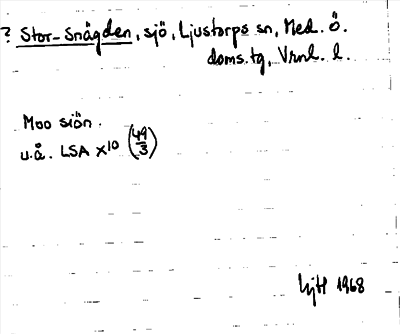 ? Stor-Snägden, sjö, Ljustorps sn, Med. Ö.
doms.tg, Vrnl. l.
Moo siön.
u.å. LSA X10 (49/3)
1968